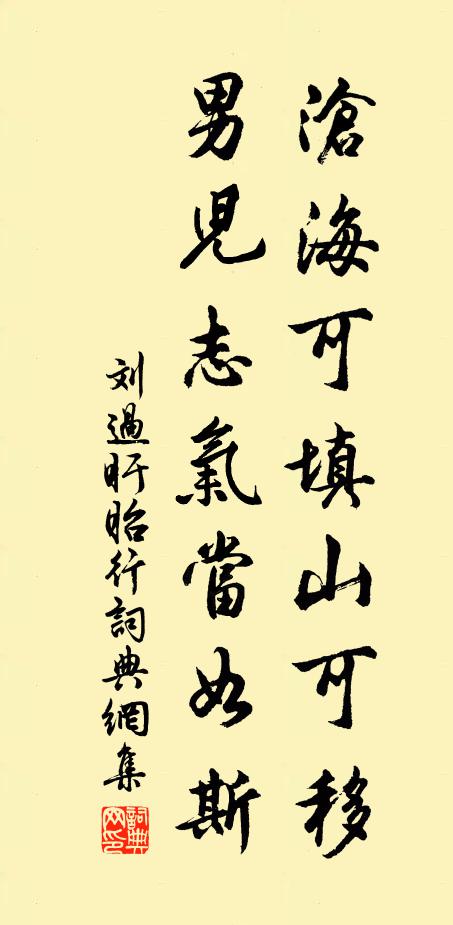 滄海可填山可移
男兒志氣當如斯
刘過盱眙行詞典網集
詞典網印